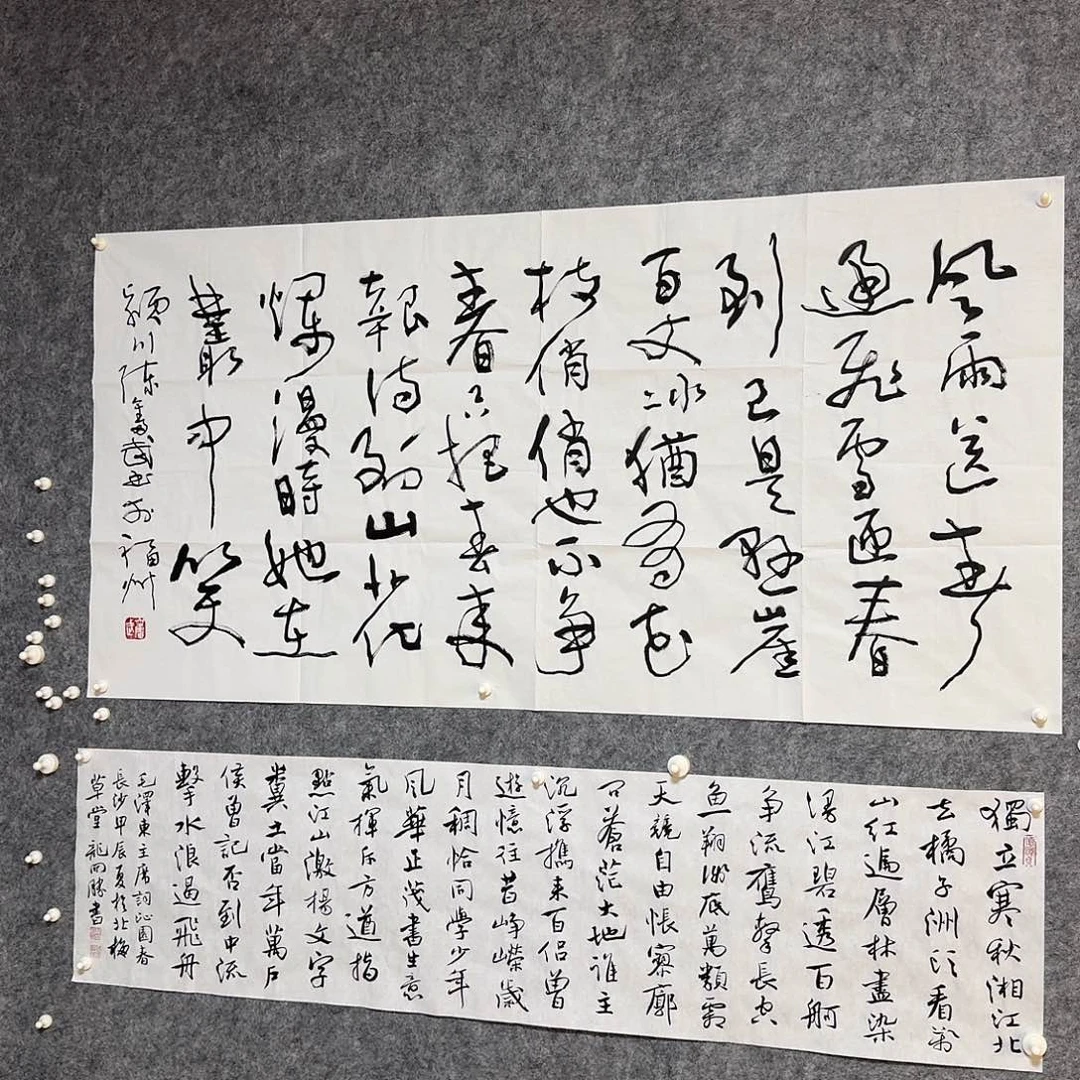 风雨送春
歸飛雪迎春
到已是懸崖
百丈冰猶有花
枝俏俏也不争
春只把春来
報待到山花
爛漫時她在
叢中笑
颖川陈武书于福州
獨立寒秋湘江北
去橘子洲头看萬
山紅遍層林盡染
漫江碧透百舸
争流鷹擊長空
魚翔淺底萬類霜
天競自由悵寥廓
问蒼茫大地誰主
沉浮攜来百侣曾
遊憶往昔崢嶸歲
月稠恰同學少年
風華正茂書生意
氣揮斥方遒指
點江山激揚文字
糞土當年萬户
侯曾記否到中流
擊水浪遏飛舟
毛澤東主席詞沁園春
長沙甲辰夏於北梅
草堂龍開勝書